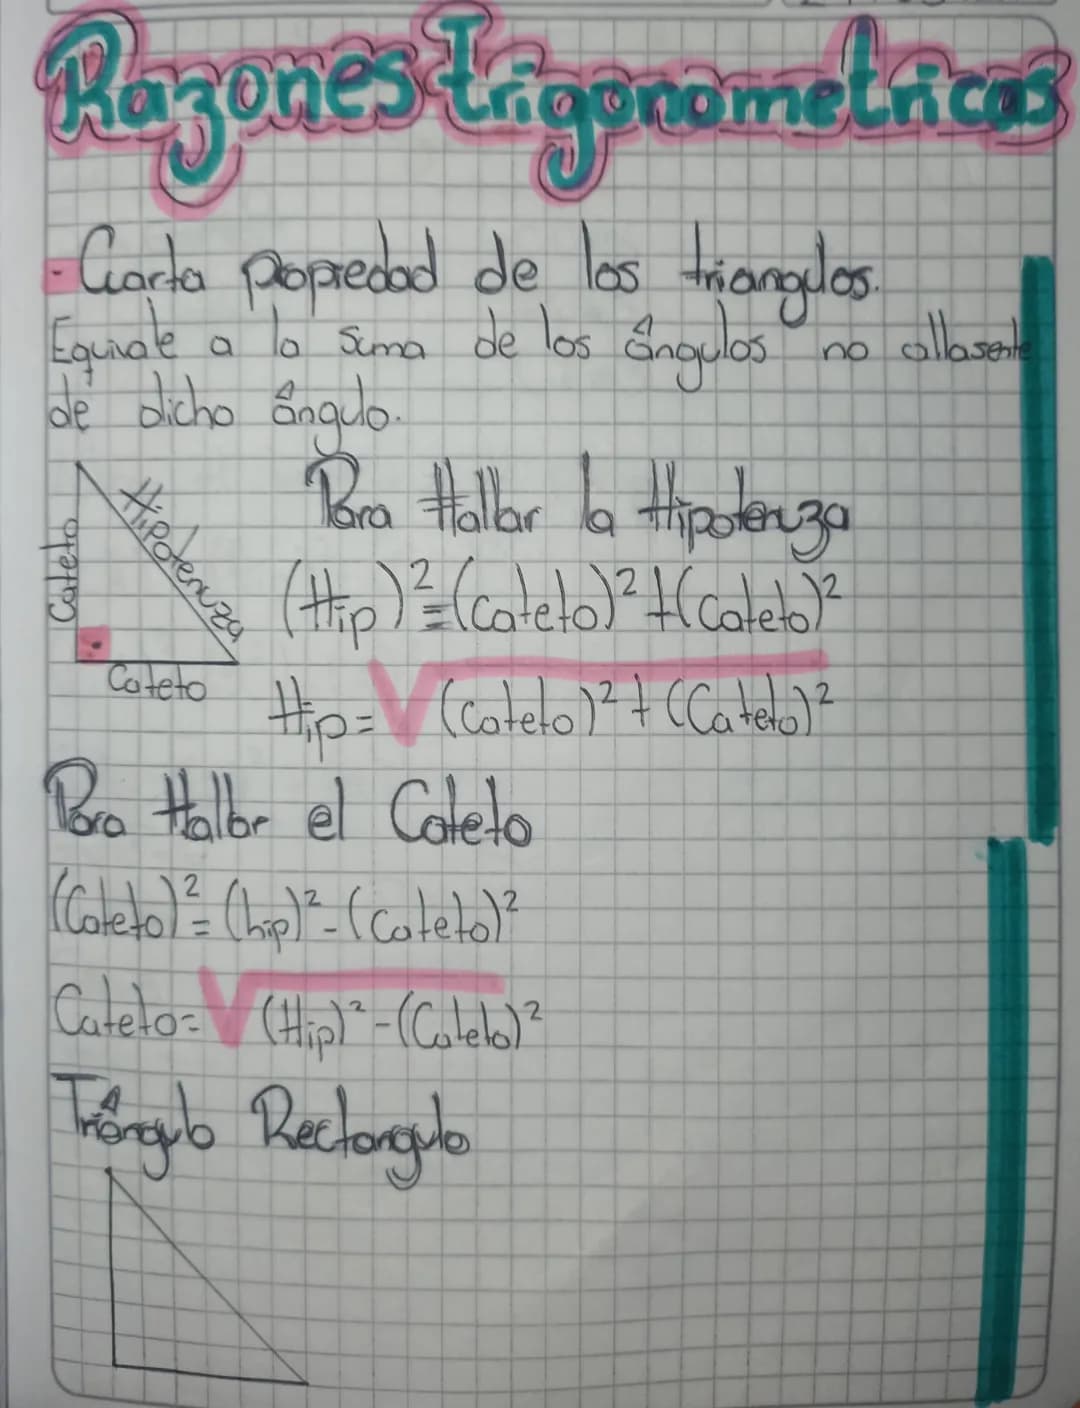 Razones trigonometricas
- Cuarta propiedad de los triangulos.
Equivale a la suma de los ángulos no collasente
de dicho ángulo.
Para Hallar la Hipotenza
Cateto
Hipotenuza
Cateto
(Hip)² = (Cateto)² + (Cateto)²
Hip = √(Cateto)² + (Cateto)²
Para Hallar el Cateto
(Cateto)² = (hip)² - (Cateto)²
Cateto = √(Hip)² - (Cateto)²
Triángulo Rectangulo